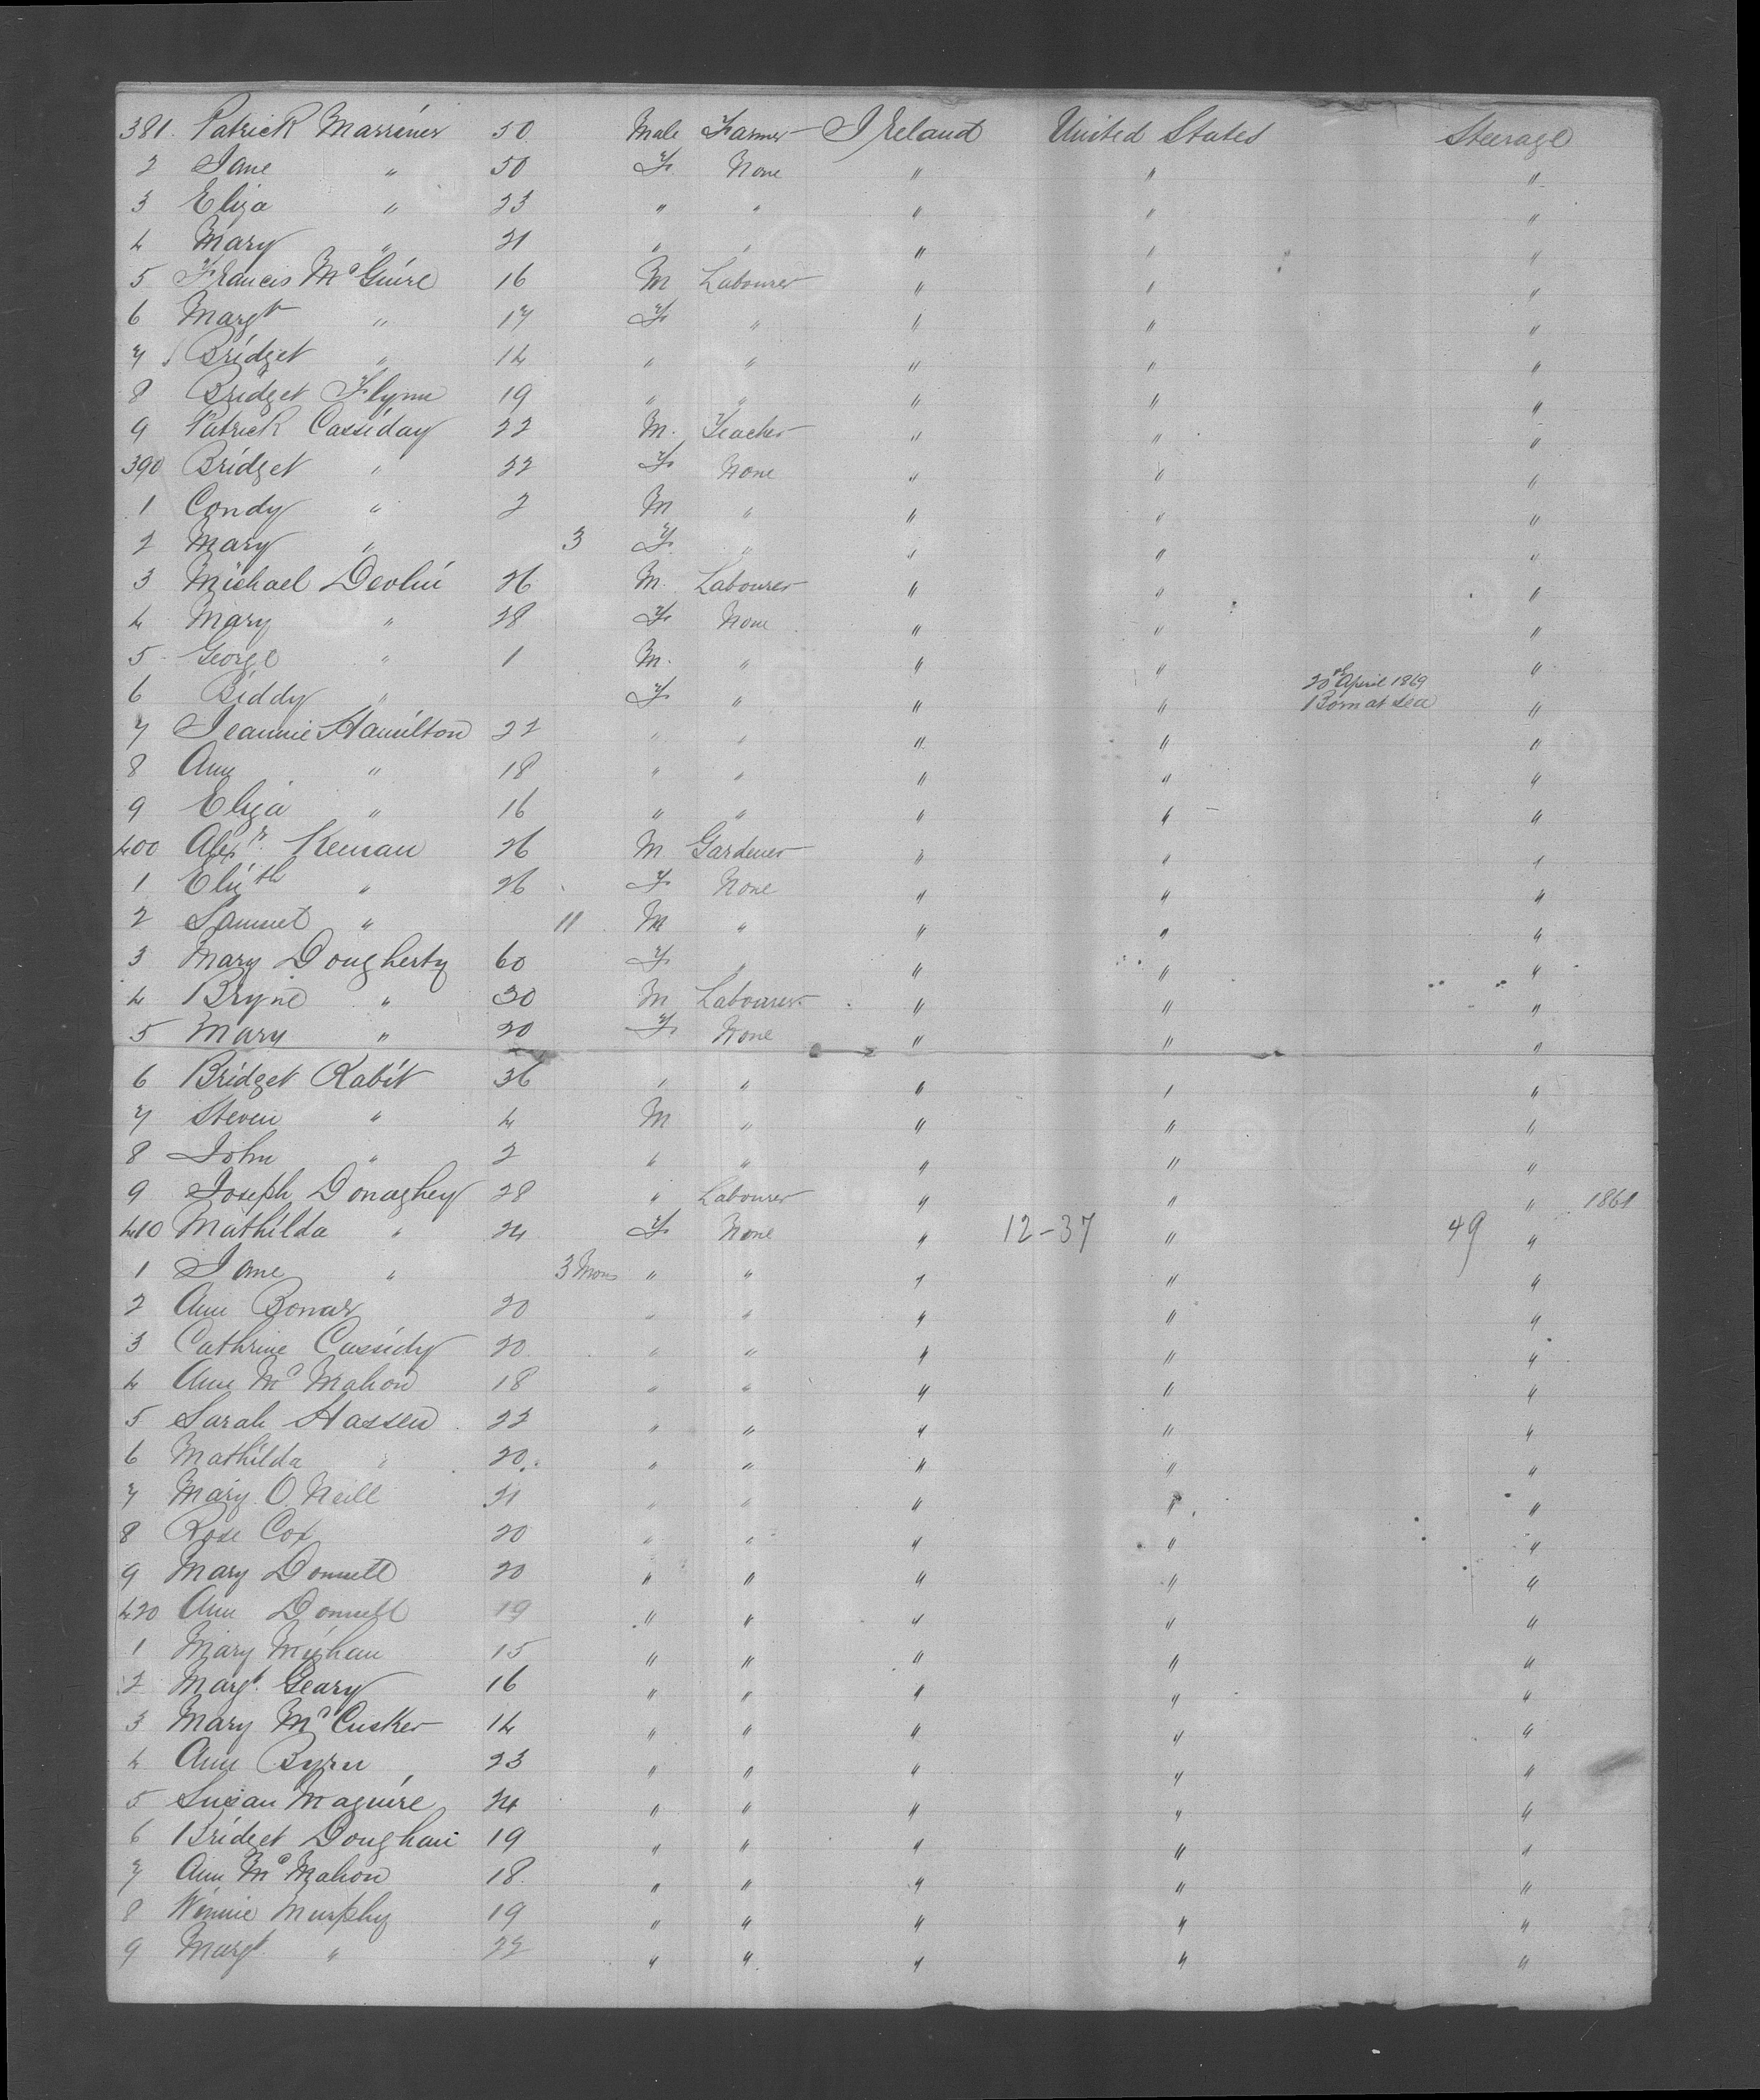 381. Patrick Marriner 50 Male Farmer Ireland United States Steerage
2 Jane " 50 F. None " " "
3 Eliza " 23 " " " " "
4 Mary " 21 " " " " "
5 Francis McGuire 16 M Labourer " " "
6 Margt " 17 F " " " "
7 Bridget " 14 " " " " "
8 Bridget Flynn 19 " " " " "
9 Patrick Cassiday 22 M. Teacher " " "
390 Bridget " 22 F None " " "
1 Condy " 2 M " " " "
2 Mary " 3 F " " " "
3 Michael Devlin 26 M. Labourer " " "
4 Mary " 28 F None " " "
5 George " 1 M. " " " "
6 Biddy " F " " " 20th April 1869 Born at sea "
7 Jeannie Hamilton 22 " " " " "
8 Ann " 18 " " " " "
9 Eliza " 16 " " " " "
400 Alexr. Keenan 26 M Gardener " " "
1 Elizth " 26 F None " " "
2 Samuel " 11 M " " " "
3 Mary Dougherty 60 F " " " "
4 Bryne " 30 M Labourer " " "
5 Mary " 20 F None " " "
6 Bridget Rabit 36 " " " " "
7 Steven " 4 M " " " "
8 John " 2 " " " " "
9 Joseph Donaghey 28 " Labourer " " " 1861
410 Mathilda " 24 F None " 12-37 " 49 "
1 Jane " 3 Mons " " " " "
2 Ann Bonar 20 " " " " "
3 Cathrine Cassidy 20 " " " " "
4 Ann McMahon 18 " " " " "
5 Sarah Hassen 22 " " " " "
6 Mathilda " 20 " " " " "
7 Mary O Neill 21 " " " " "
8 Rose Cox 20 " " " " "
9 Mary Donnell 20 " " " " "
420 Ann Donnell 19 " " " " "
1 Mary Mighan 15 " " " " "
2 Margt. Geary 16 " " " " "
3 Mary McCusker 14 " " " " "
4 Ann Byrn 23 " " " " "
5 Susan Maguire 24 " " " " "
6 Bridget Doughan 19 " " " " "
7 Ann McMahon 18 " " " " "
8 Winnie Murphy 19 " " " " "
9 Margt " 22 " " " " "